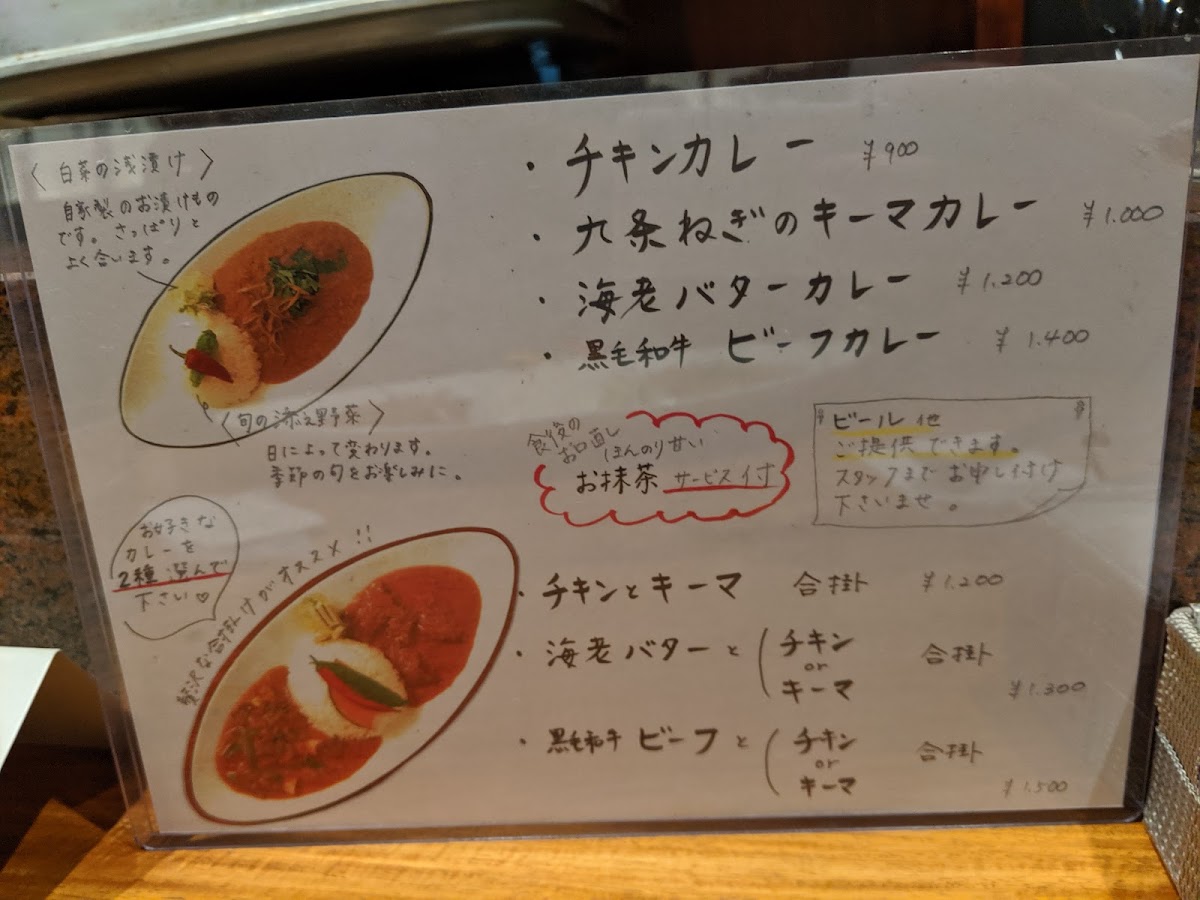 〈 白菜の浅漬け 〉
自家製のお漬けもの
です。さっぱりと
よく合います。
・チキンカレー ¥900
・九条ねぎのキーマカレー ¥1.000
・海老バターカレー ¥1.200
・黒毛和牛 ビーフカレー ¥1.400
〈旬の添え野菜〉
日によって変わります。
季節の旬をお楽しみに。
食後の
お口直し
ほんのり甘い
お抹茶 サービス付
ビール 他
ご提供できます。
スタッフまで お申し付け
下さいませ。
お好きな
カレーを
2種 選んで
下さい♡
贅沢な合掛けがオススメ!!
・チキンとキーマ 合掛 ¥1.200
・海老バターと(チキン
or
キーマ
合掛
¥1.300
・黒毛和牛 ビーフと(チキン
or
キーマ
合掛
¥1.500